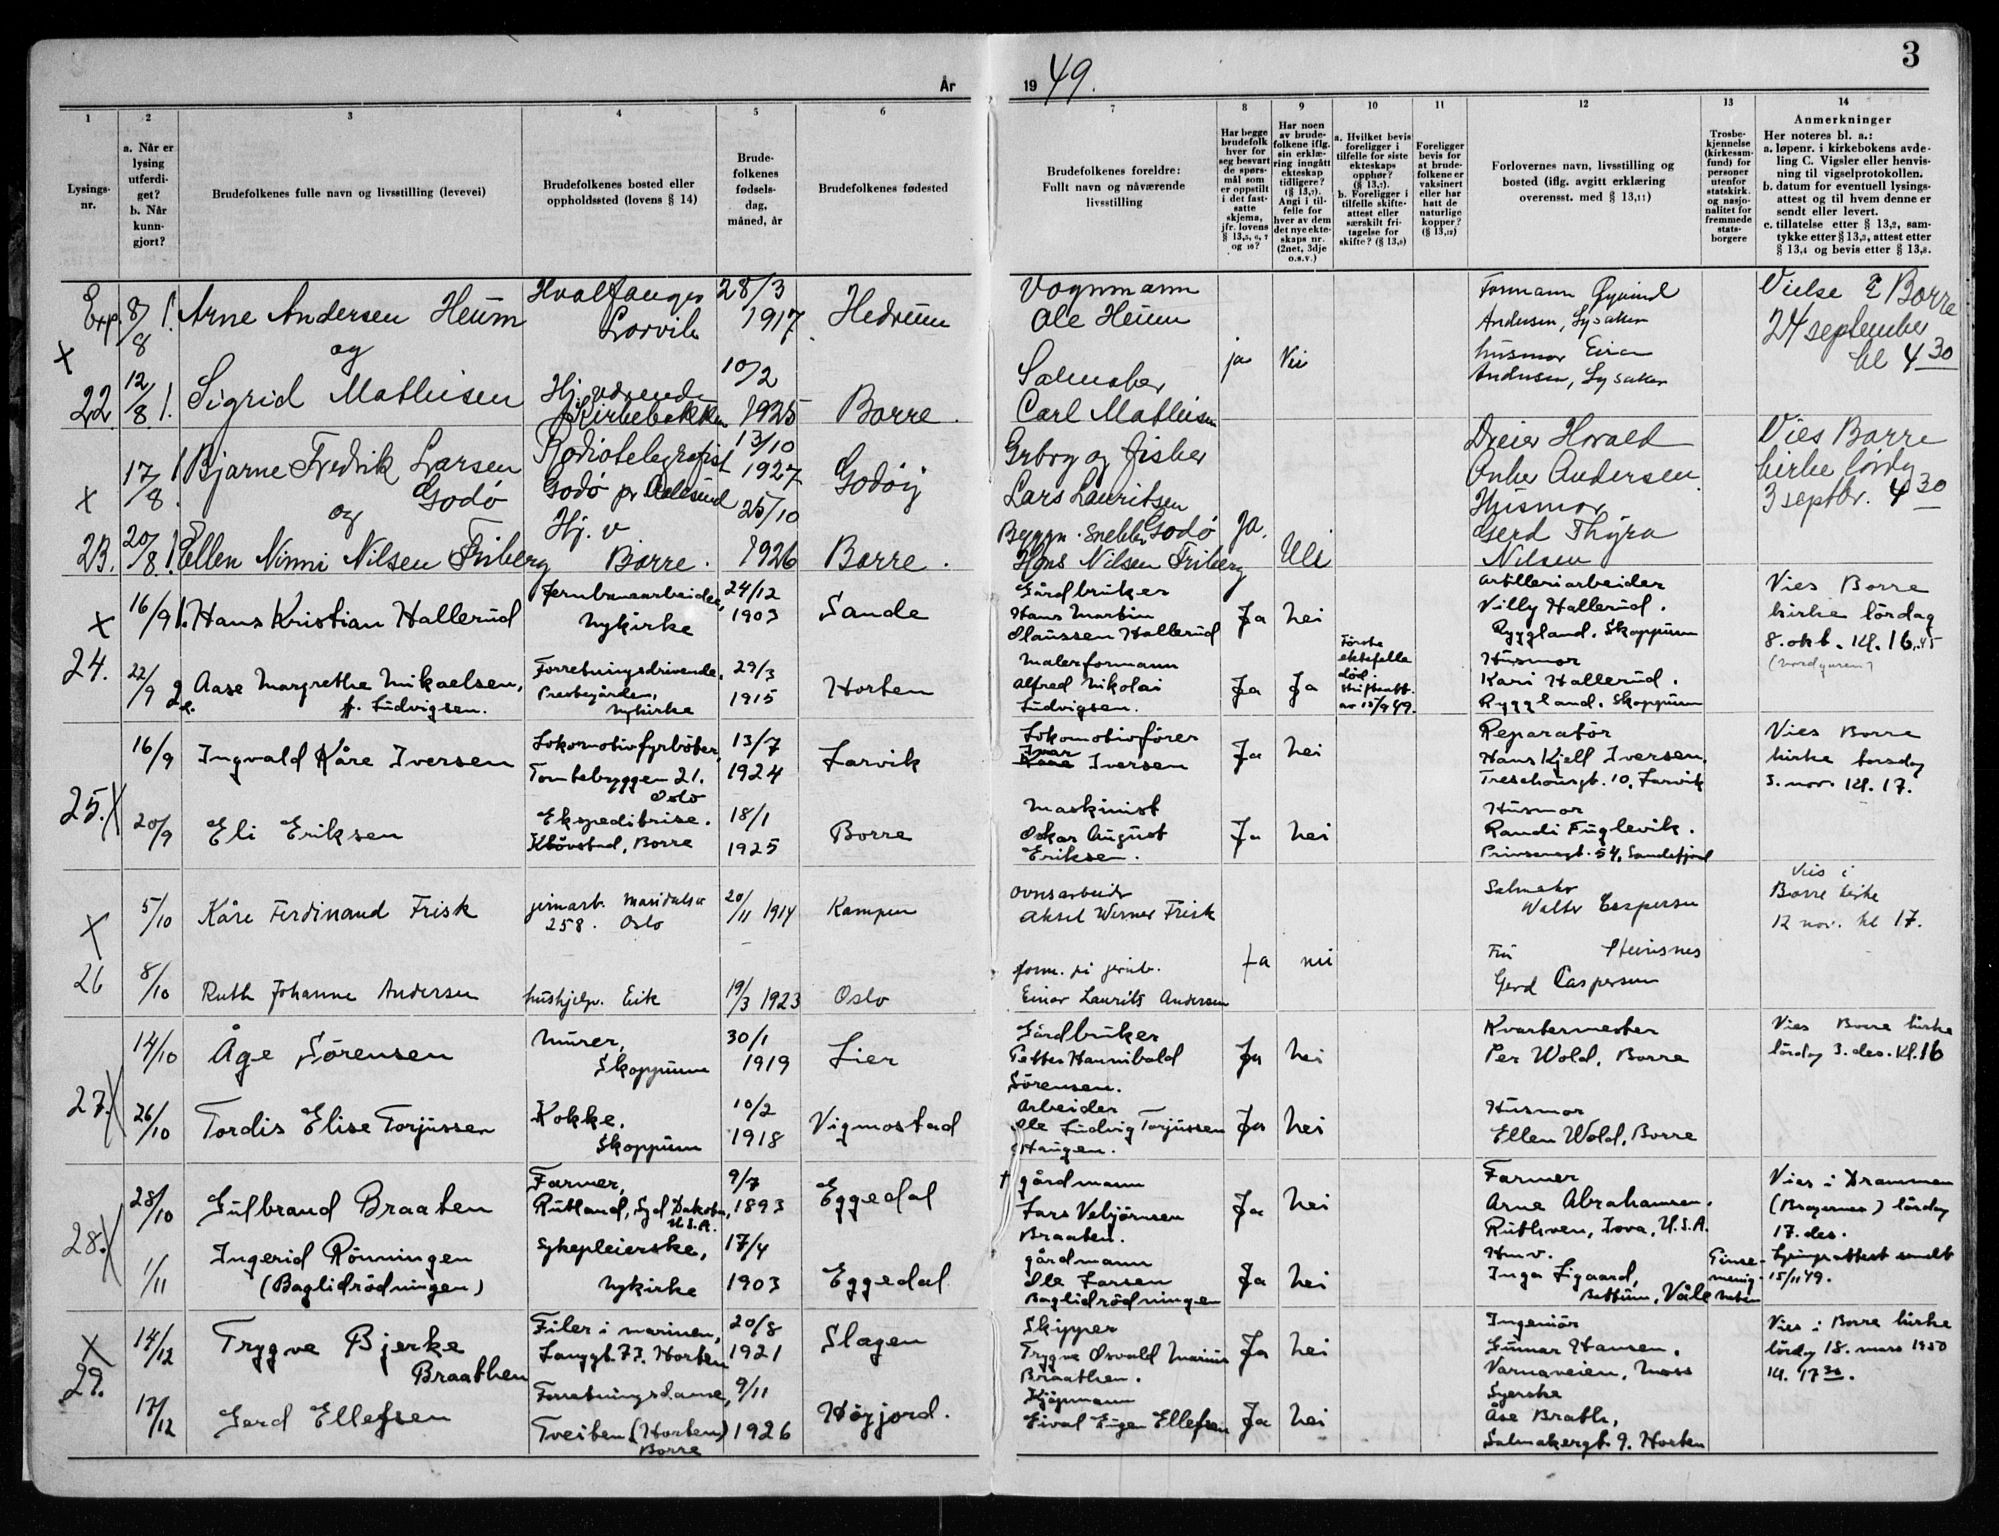 3
År
19 49.
1
2
3
4
5
6
7
8
9
10
11
12
13
14
Lysings-
nr.
a. Når er
lysing
utferdi-
get?
b. Når
kunn-
gjort?
Brudefolkenes fulle navn og livsstilling (levevei)
Brudefolkenes bosted eller
oppholdssted (lovens § 14)
Brude-
folkenes
fødsels-
dag,
måned, år
Brudefolkenes fødested
Brudefolkenes foreldre:
Fullt navn og nåværende
livsstilling
Har begge
brudefolk
hver for
seg besvart
de spørs-
mål som
er oppstilt
i det fast-
satte
skjema,
jfr. lovens
§ 13,5, 6, 7
og 10?
Har noen
av brude-
folkene iflg.
sin erklæ-
ring inngått
ekteskap
tidligere?
(§ 13,7).
Angi i til-
felle for
hver av dem
det nye ekte-
skaps nr.
(2net, 3dje
o.s.v.)
a. Hvilket bevis
foreligger i
tilfelle for siste
ekteskaps
opphør?
(§ 13,7).
b. Foreligger i
tilfelle skifte-
attest eller
særskilt fri-
tagelse for
skifte? (§ 13,9)
Foreligger
bevis for
at brude-
folkene er
vaksinert
eller har
hatt de
naturlige
kopper?
(§ 13,12)
Forlovernes navn, livsstilling og
bosted (iflg. avgitt erklæring
overensst. med § 13,11)
Trosbe-
kjennelse
(kirkesam-
fund) for
personer
utenfor
statskirk.
og nasjo-
nalitet for
fremmede
stats-
borgere
Anmerkninger
Her noteres bl. a.:
a. løpenr. i kirkebokens avde-
ling C. Vigsler eller henvis-
ning til vigselprotokollen.
b. datum for eventuell lysings-
attest og til hvem denne er
sendt eller levert.
c. tillatelse etter § 13,2, sam-
tykke etter § 13,3, attest etter
§ 13,4 og bevis etter § 13,8.
Exp. 8/8 Arne Andersen Heum
Hvalfanger
Larvik
28/3
1917
Hedrum
Vognmann
Ole Heum
Formann Øyvind
Andersen, Lysaker
Vielse i Borre
24 september
kl 4 30
x
og
22. 12/8 Sigrid Mathisen
Hj. værende
Kirkebakken
10/2
1925
Borre.
Salmaker
Carl Mathisen
ja
Nei
husmor
Andersen, Lysaker
x 17/8 Bjarne Fredrik Larsen
Godø
Radiotelegrafist
Godø pr Aalesund
13/10
1927
Godøy
Grbr. og fisker
Lars Lauritsen
Godø
Dreier Harald
Andersen
Vies Borre
kirke lørdg
3 septbr. 4 30
og
23. 20/8 Ellen Ninni Nilsen Friberg
Hj. v
Borre.
25/10
1926
Borre.
Byggn. snekker
Hans Nilsen Friberg
Ja.
Nei
Husmor
Gerd Thyra
Nilsen
x 16/9 Hans Kristian Hallerud
Jernbanearbeider,
Nykirke
24/12
1903
Sande
Gårdbruker
Hans Martin
Olaussen Hallerud
Ja
Nei
Artilleriarbeider
Villy Hallerud.
Ryggland. Skoppum
Vies Borre
kirke lördag
8. okt. kl. 16.45
24. 22/9 Aase Margrethe Mikaelsen,
f. Ludvigsen.
Forretningsdrivende,
Prestegården,
Nykirke
29/3
1915
Horten
Malerformann
Alfred Nikolai
Ludvigsen.
Ja
Ja
Første
ektefelle
död.
Skifteatt.
av 15/9 49.
Husmor
Kari Hallerud.
Ryggland. Skoppum
16/9 Ingvald Kåre Iversen
Lokomotivfyrböter,
Tomtebryggen 21.
Oslo
13/7
1924
Larvik
Lokomotivförer
Ivar
Iversen
Ja
Nei
Reparatör
Hans Kjell Iversen,
Treschowsgt. 10, Larvik
Vies Borre
kirke torsdag
3. nov. kl. 17.
25. x 20/9 Eli Eriksen
Ekspeditrise.
Klövstad, Borre
18/1
1925
Borre
Maskinist
Oskar August
Eriksen.
Ja
Nei
Husmor
Randi Fuglevik.
Prinsensgt. 54, Sandefjord
x 5/10 Kåre Ferdinand Frisk
jernarb. Maridalsv
258. Oslo
20/11 1914
Kampen
ovnsarbeider
Aksel Werner Frisk
Salmaker
Walter Caspersen
Vies i
Borre kirke
12 nov. kl 17.
26 8/10 Ruth Johanne Andersen
hushjelp. Eik
19/3 1923
Oslo
form. på jernb.
Einar Laurits Andersen
Ja
nei
Fru Steinsnes
Gerd Caspersen
14/10 Åge Sörensen
Murer,
Skoppum
30/1
1919
Lier
Gårdbruker
Petter Hannibald
Sörensen.
Ja
Nei
Kvartermester
Per Wold, Borre
Vies Borre kirke
lördag 3. des. kl. 16
27. x 26/10 Tordis Elise Torjussen
Kokke.
Skoppum
10/2
1918
Vigmostad
Arbeider
Ole Ludvig Torjussen
Haugen.
Ja
Nei
Husmor
Ellen Wold, Borre
28/10 Gulbrand Braaten
Farmer,
Rutland, Syd Dakota,
U.S.A.
9/7
1893
Eggedal
† gårdmann
Lars Vebjörnsen
Braaten.
Ja
Nei
Farmer
Arne Abrahamsen.
Ruthven, Iova, U.S.A.
Vies i Drammen
(Bragernes) lördag
17. des.
Lysingsattest sendt
15/11 49.
28. x 1/11 Ingerid Rönningen
(Baglidrödningen)
Sykepleierske,
Nykirke
17/4
1903
Eggedal
gårdmann
Ole Larsen
Baglidrödningen
Ja
Nei
Hmv.
Inga Ligaard,
Våle
Pinse-
menig-
heten
x 14/12 Trygve Bjerke
Braathen
Filer i marinen,
Langgt. 73. Horten
20/8
1921
Slagen
Skipper
Trygve Osvald Marius
Braathen.
Ja
Nei
Ingeniör
Gunnar Hansen.
Varnaveien, Moss
Vies i Borre kirke
lördag 18. mars 1950
kl. 17 30.
29. 17/12 Gerd Ellefsen
Forretningsdame,
Tveiten (Horten)
Borre
9/11
1926
Høyjord.
Kjöpmann
Eival Eugen Ellefsen
Ja
Nei
Syerske
Åse Brath,
Salmakergt. 9. Horten